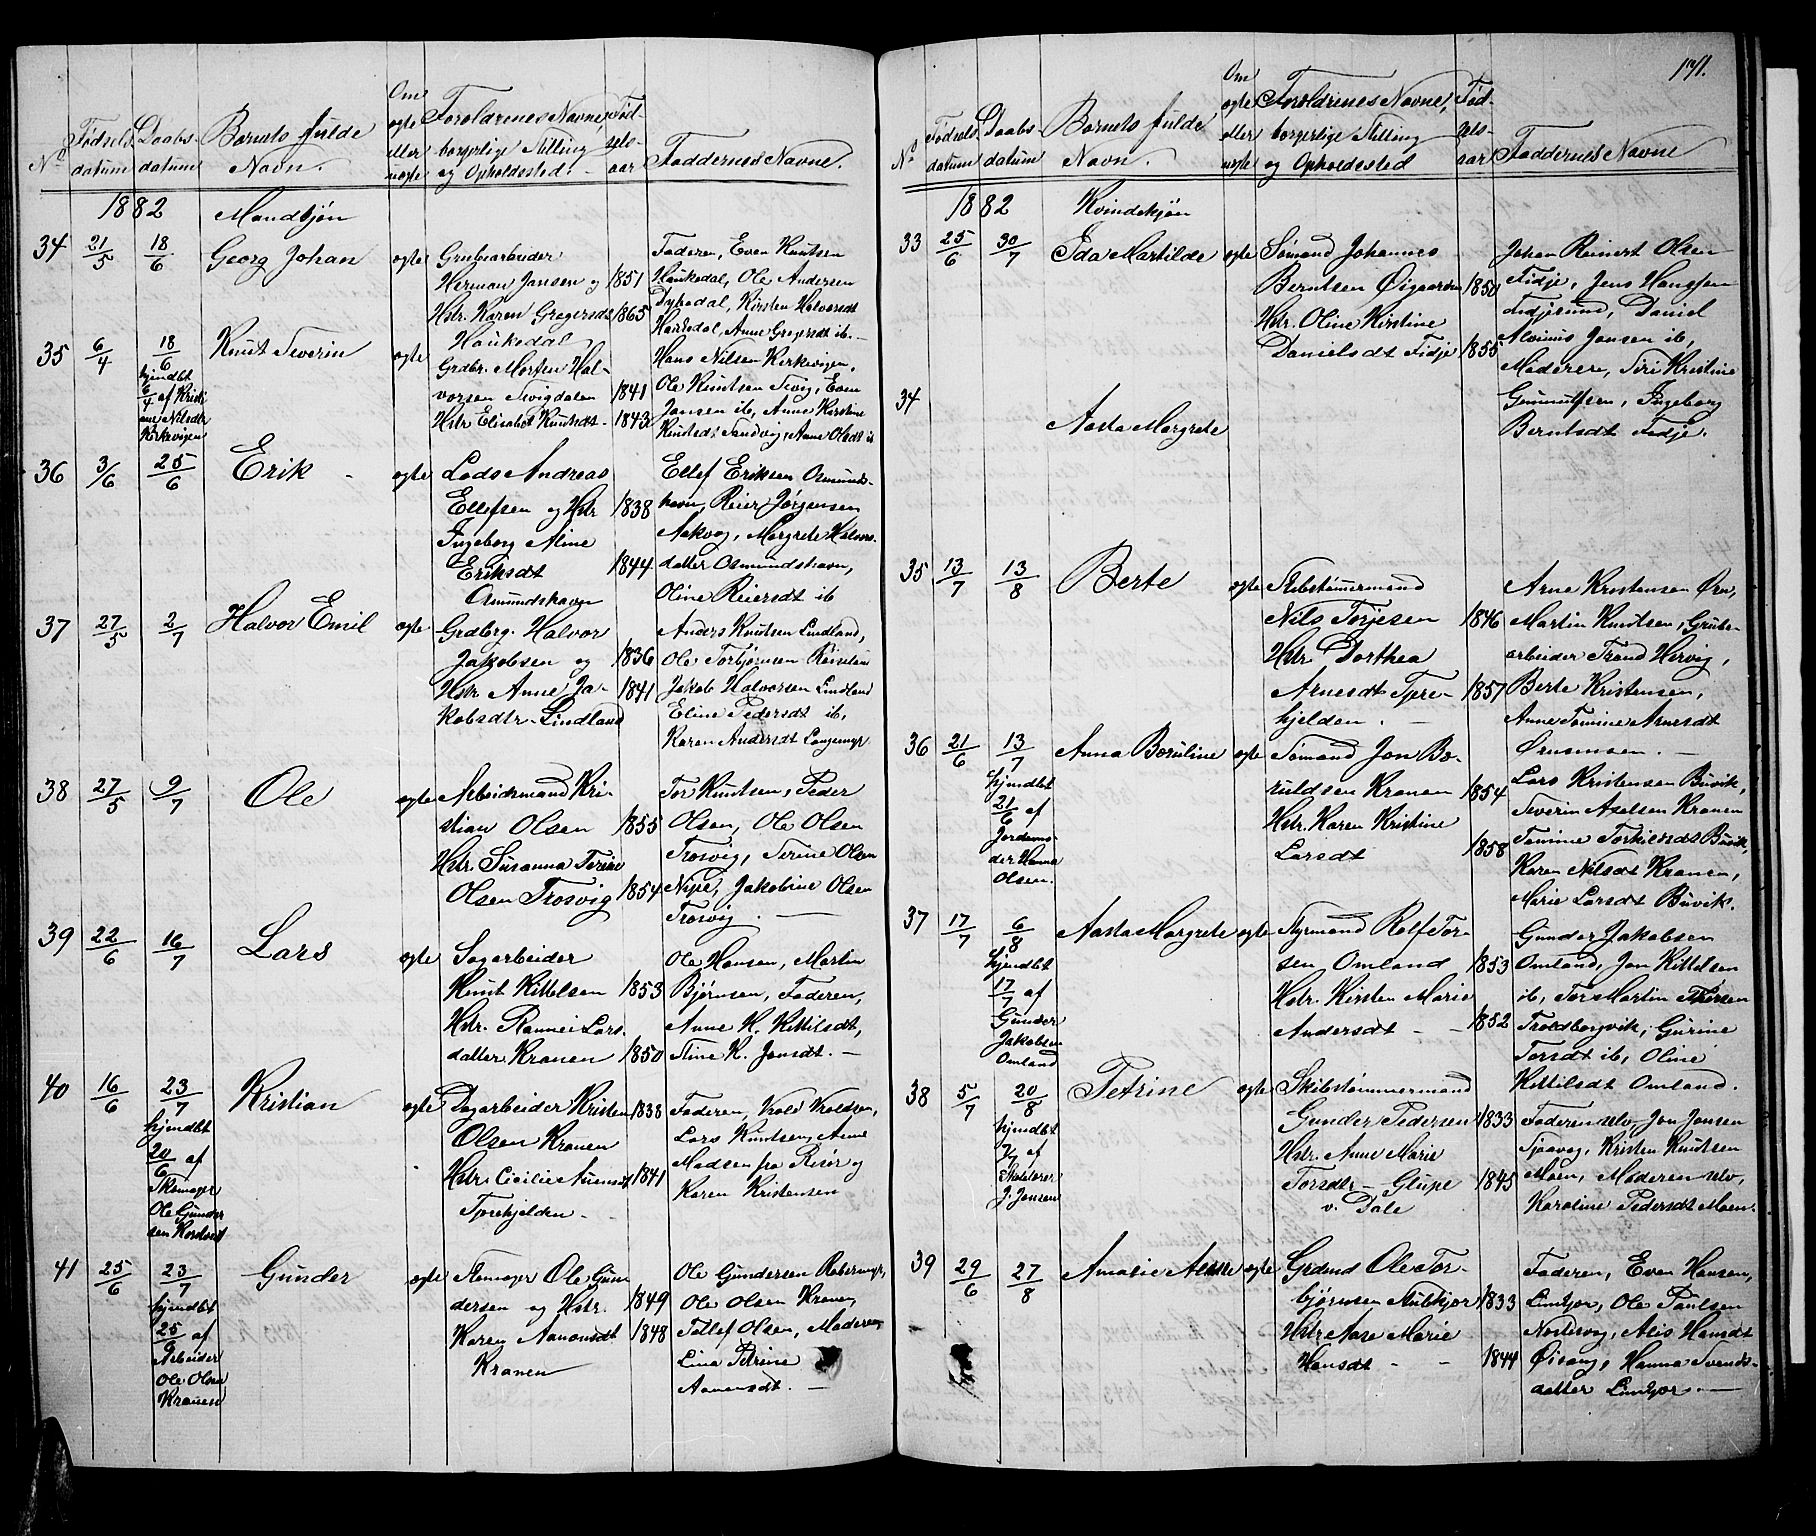 Nº
Fødsels
datum
Daabs-
datum
Barnets fulde
Navn.
Om
ægte
eller
uægte
Forældrenes Navne,
borgerlige Stilling
og Opholdssted.
Fød-
sels-
aar
Faddernes Navne.
1882
Mandkjøn
34
21/5
18/6
Georg Johan
ægte
Grubearbeider
Herman Jansen og 1851
Hstr. Karen Gregersdt 1865
Haukedal
Faderen, Even Knutsen
Haukedal, Ole Andersen
Dybedal, Kirsten Halvorsdt
Haukedal, Anne Gregersdt ib. —
35
6/4
18/6
hjmdbt
6/4 af Kristi
ane Nilsdtr
Kirkevigen
Knut Severin
ægte
Grdbr. Morten Hal-
vorsen Sevigdalen 1841
Hstr Elisabet Knutsdt- 1843
Hans Nilsen Kirkevigen,
Ole Knutsen Sevig, Even
Jansen ib, Anne Kirstine
Knutsdt Sandvig, Anne Olsdt ib
36
3/6
25/6
Erik -
ægte
Lods Andreas
Ellefsen og Hstr 1838
Ingeborg Aline
Eriksdt 1844
Osmundshavn
Ellef Eriksen Osmunds-
havn, Reier Jørgensen
Aakvog, Margrete Halvors-
datter Osmundshavn,
Oline Reiersdt ib
37
27/5
2/7
Halvor Emil
ægte
Grdbrg. Halvor
Jakobsen og 1836
Hstr. Anne Ja- 1841
kobsdtr. Lindland
Anders Knutsen Lindland,
Ole Torbjørnsen
Jakob Halvorsen Lindland
Eline Pedersdt ib,
Karen Andersdt Langemyr.
38
27/5
9/7
Ole
ægte
Arbeidsmand Kri-
stian Olsen 1855
Hstr. Susanna Terine
Olsen Trosvig 1854
Tor Knutsen, Peder
Olsen, Ole Olsen
Trosvig, Terine Olsen
Nipe, Jakobine Olsen
Trosvig. —
39
22/6
16/7
Lars
ægte
Sagarbeider
Knut Kittelsen 1853
Hstr. Rannei Lars-
datter Kranen 1850
Ole Hansen, Martin
Bjørnsen, Faderen,
Anne K. Kittilsdt,
Stine K. Jonsdt. —
40
16/6
23/7
hjmdbt
20/6 af
Skomager
Ole Gunder
sen
Kristian
ægte
Dagarbeider Kristen 1838
Olsen Kranen
Hstr. Cicilie 1841
Tjørehjelden -
Faderen, Vrold Vroldsen,
Lars Knutsen, Anne
Madsen fra Risør og
Karen Kristensen
41
25/6
23/7
hjmdbt
25/6 af
Arbeider
Ole Olsen
Kranen
Gunder
ægte
Skomager Ole Gun
dersen og Hstr. 1849
Karen Aanonsdt 1848
Kranen
Ole Gundersen
Ole Olsen Kranen
Tellef Olsen, Moderen,
Lina Petrine
Aanonsdt. —
171.
Nº
Fødsels
datum
Daabs-
datum
Barnets fulde
Navn.
Om
ægte
eller
uægte
Forældrenes Navne,
borgerlige Stilling
og Opholdssted
Fød-
sels-
aar
Faddernes Navne
1882
Kvindekjøn
33
25/6
30/7
Ida Martilde
ægte
Sømand Johannes
Berntsen Øigaarden 1850
Hstr. Oline Kirstine
Danielsdt Fidje 1855
Johan Reinert Olsen
Fidje, Jens Hansen
Fidjesund, Daniel
Alvinus Jansen ib,
Moderen, Siri Kristine
Gunnulfsen, Ingeborg
Berntsdt Fidje.
34
Aasta Margrete
35
13/7
13/8
Berte
ægte
Skibstømmermand
Nils Torjesen 1846
Hstr. Dorthea
Arnesdt Tjøre- 1857
hjelden. —
Arne Kristensen Øre,
Martin Knutsen, Grube-
arbeider Trond Hervig,
Berte Kristensen,
Anne Tomine Arnesdt
36
21/6
13/7
hjmdbt
21/6 af
Jordemo-
der Hanna
Olsen.
Anna Boruline
ægte
Sømand Jon Bo-
ruldsen Kranen 1854
Hstr. Karen Kristine
Larsdt 1858
Lars Kristensen Buvik,
Severin Axelsen Kranen
Tomine Torkilsdt Buvik,
Karen Nilsdt Kranen,
Marie Larsdt Buvik.
37
17/7
6/8
hjmdbt
17/7 af
Gunder
Jakobsen
Omland
Aasta Margrete
ægte
Styrmand Rolf Tor-
sen Omland 1853
Hstr. Kirsten Marie
Andersdt - - 1852
Gunder Jakobsen
Omland, Jon Kittelsen
ib, Tor Martin
Troldbergvik, Gurine
Torsdt ib, Oline
Kittilsdt Omland.
38
5/7
20/8
hjmdbt
af
Skolelærer
J. Jonsen
Petrine
ægte
Skibstømmermand
Gunder Pedersen 1833
Hstr. Anne Marie
Torsdtr - Glupe 1845
v. Dale
Faderen selv, Jon Jonsen
Sjaavåg, Kristen Knutsen
Moen, Moderen selv,
Karoline Pedersdt Moen.
39
29/6
27/8
Amalie
ægte
Grdmd Ole Tor-
bjørnsen Aubekjær 1833
Hstr Aase Marie
Hansdt - - 1844
Faderen, Even Hansen,
Limkjær, Ole Paulsen
Nordvig, Alis Hansdt
Øivang, Hanna Svends-
datter Limkjær. —